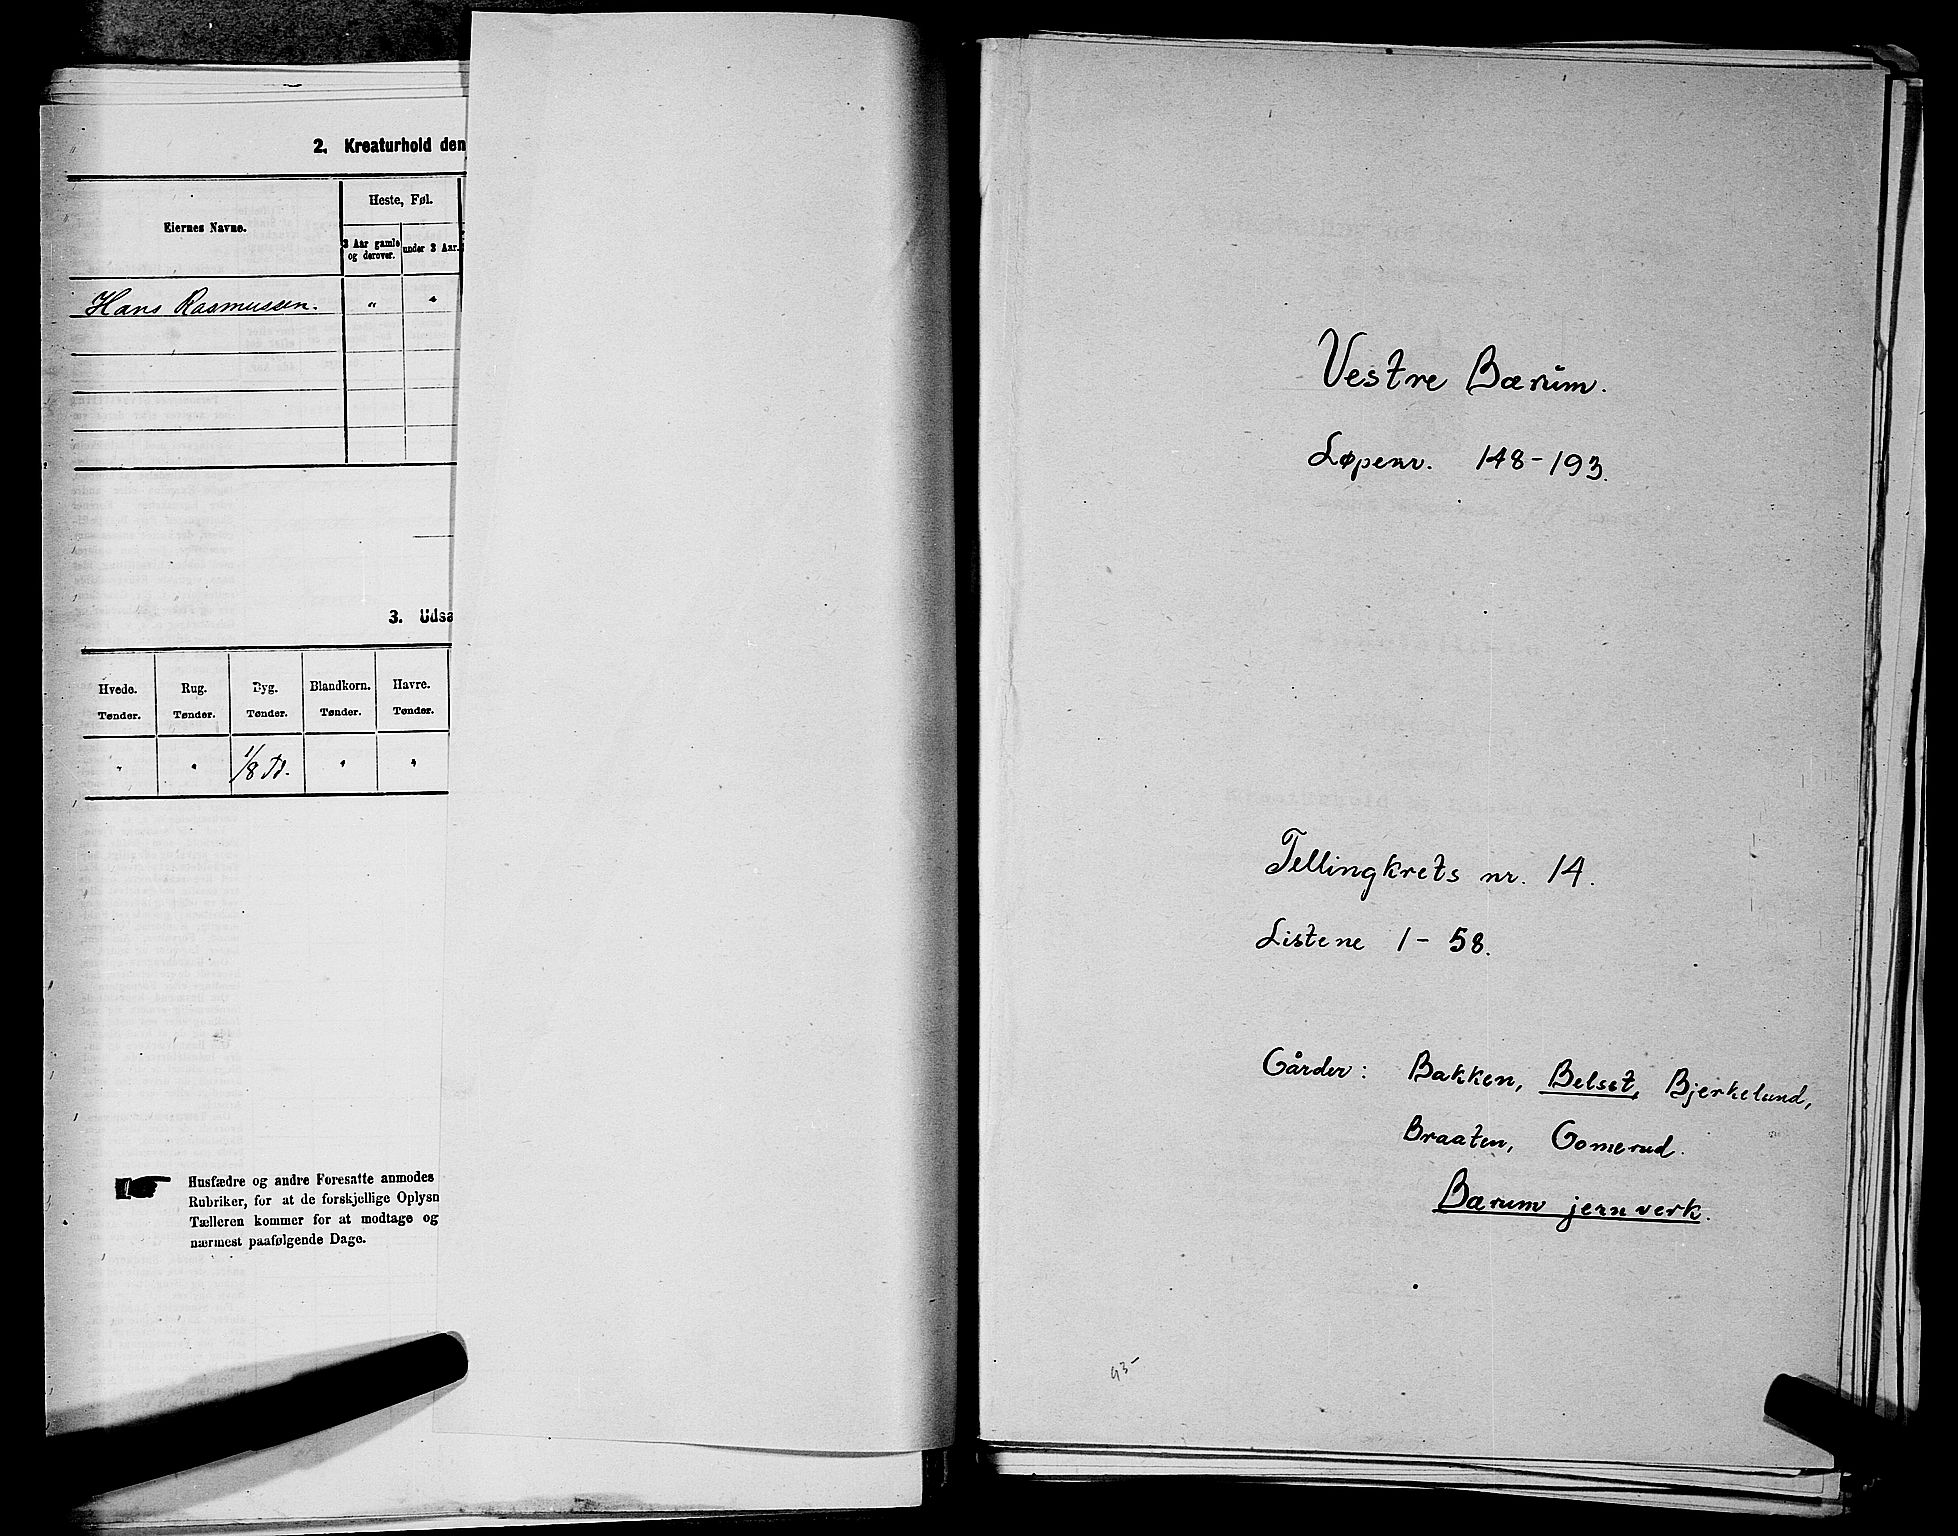 2. Kreaturhold den
Eiernes Navne.
Heste, Føl.
3 Aar gamle og derover.
under 3 Aar.
Hans Rasmussen. " "
3. Udsa
Hvede. Rug. Byg. Blandkorn. Havre.
Tønder. Tønder. Tønder. Tønder. Tønder.
" " 1/8 Td. " "
Husfædre og andre Foresatte anmodes
Rubriker, for at de forskjellige Oplysn
Tælleren kommer for at modtage og
nærmest paafølgende Dage.
Vestre Bærum.
Løpenr. 148-193.
Tellingkrets nr. 14.
Listene 1-58.
Gårder: Bakken, Belset, Bjerkelund,
Braaten, Gomerud.
Bærum jernverk.
93-